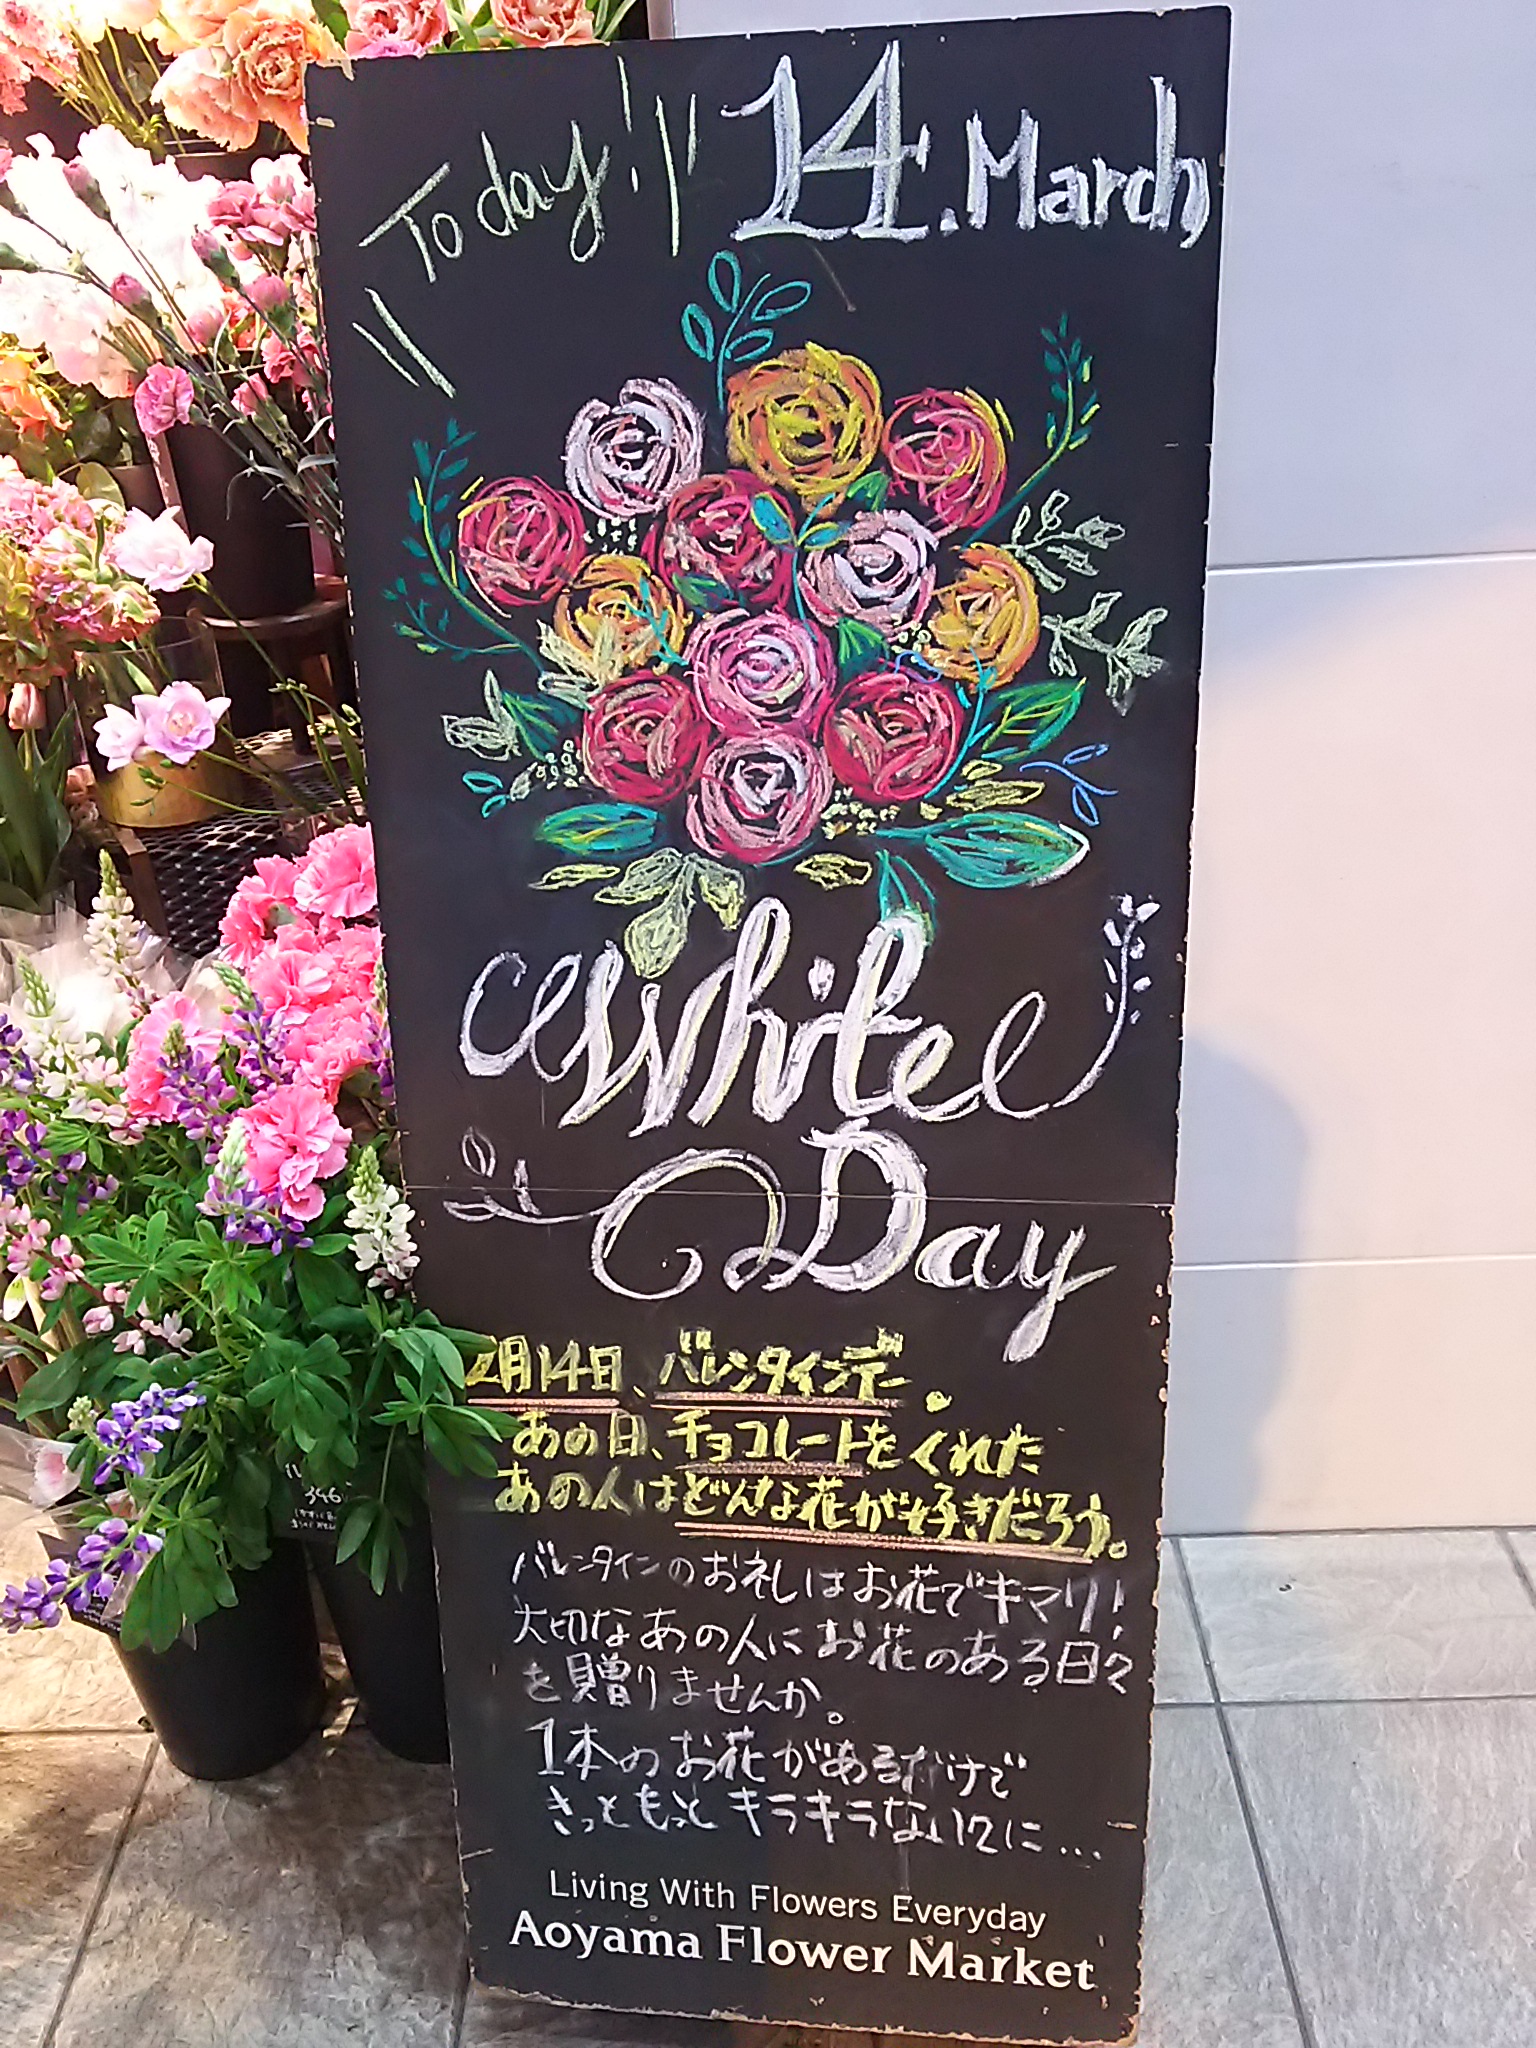 Today!
14. March,
White
Day
2月14日、バレンタインデー。
あの日、チョコレートをくれた
あの人はどんな花が好きだろう。
バレンタインのお礼はお花でキマリ!
大切なあの人にお花のある日々
を贈りませんか。
1本のお花があるだけで
きっともっとキラキラな
Living With Flowers Everyday
Aoyama Flower Market